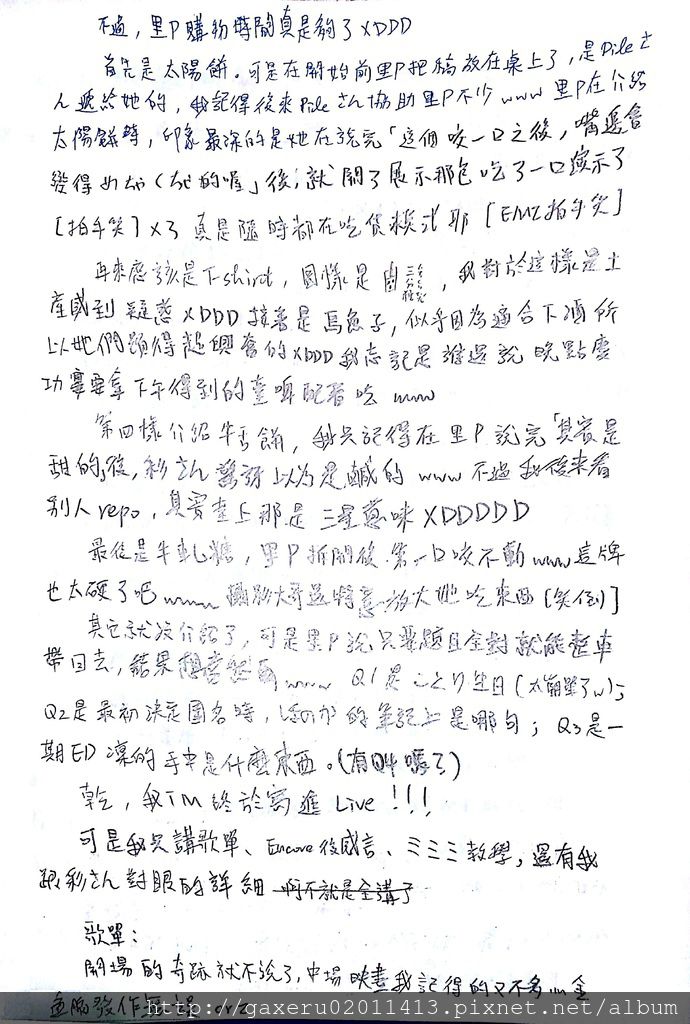 不過，里P購物時間真是夠了XDDD
首先是太陽餅。可是在開始前里P把稿放在桌上了，是Pileさ
ん遞給她的，我記得後來Pileさん協助里P不少www 里P在介紹
太陽餅時，印象最深的是她在說完「這個咬一口之後，嘴邊會
變得 」後，就開了展示那包吃了一口演示了
[拍手笑]x3 真是隨時都在吃貨模式耶 [EMZ拍手笑]
再來應該是T-shirt，圖樣是由 ，我對於這樣是土
產感到疑惑XDDD 接著是烏魚子，似乎因為適合下酒所
以她們顯得超興奮的XDDD 我忘記是誰還說晚點慶
功宴要拿下午得到的 啤配著吃 www
第四樣介紹牛舌餅，我只記得在里P說完「其實是
甜的」後，彩さん驚訝以為是鹹的 www 不過我後來看
別人repo，其實車上那是三星蔥味XDDDDD
最後是牛軋糖，里P拆開後第一口咬不動www 這牌
也太硬了吧www 攝影大哥還特意放大她吃東西[笑倒]
其它就沒介紹了，可是里P說只要題目全對就能整車
帶回去，結果 www Q1是ことり生日(太簡單了w)；
Q2是最初決定團名時，ほのか的筆記上是哪句；Q3是一
期ED凜的手中是什麼東西。(有夠 )
乾，我TM終於寫進Live!!!
可是我只講歌單、Encore後感言、ミミミ教學，還有我
跟彩さん對眼的詳細 啊不就是全講了
歌單：
開場的奇跡就不說了，中場映畫我記得的又不多 金
魚腦發作 orz
http://gaxeru02011413.pixnet.net/album